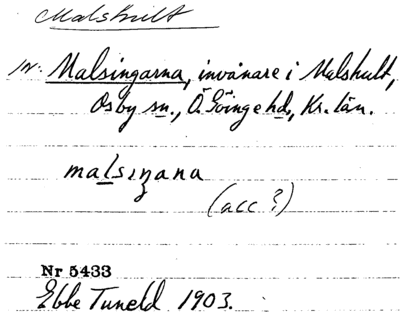 Malshult
In: Malsingarna, invånare i Malshult,
Osby sn., Ö. Göinge hd., Kr. län.
malsıŋana
(acc ?)
Nr 5433
Ebbe Tuneld 1903.